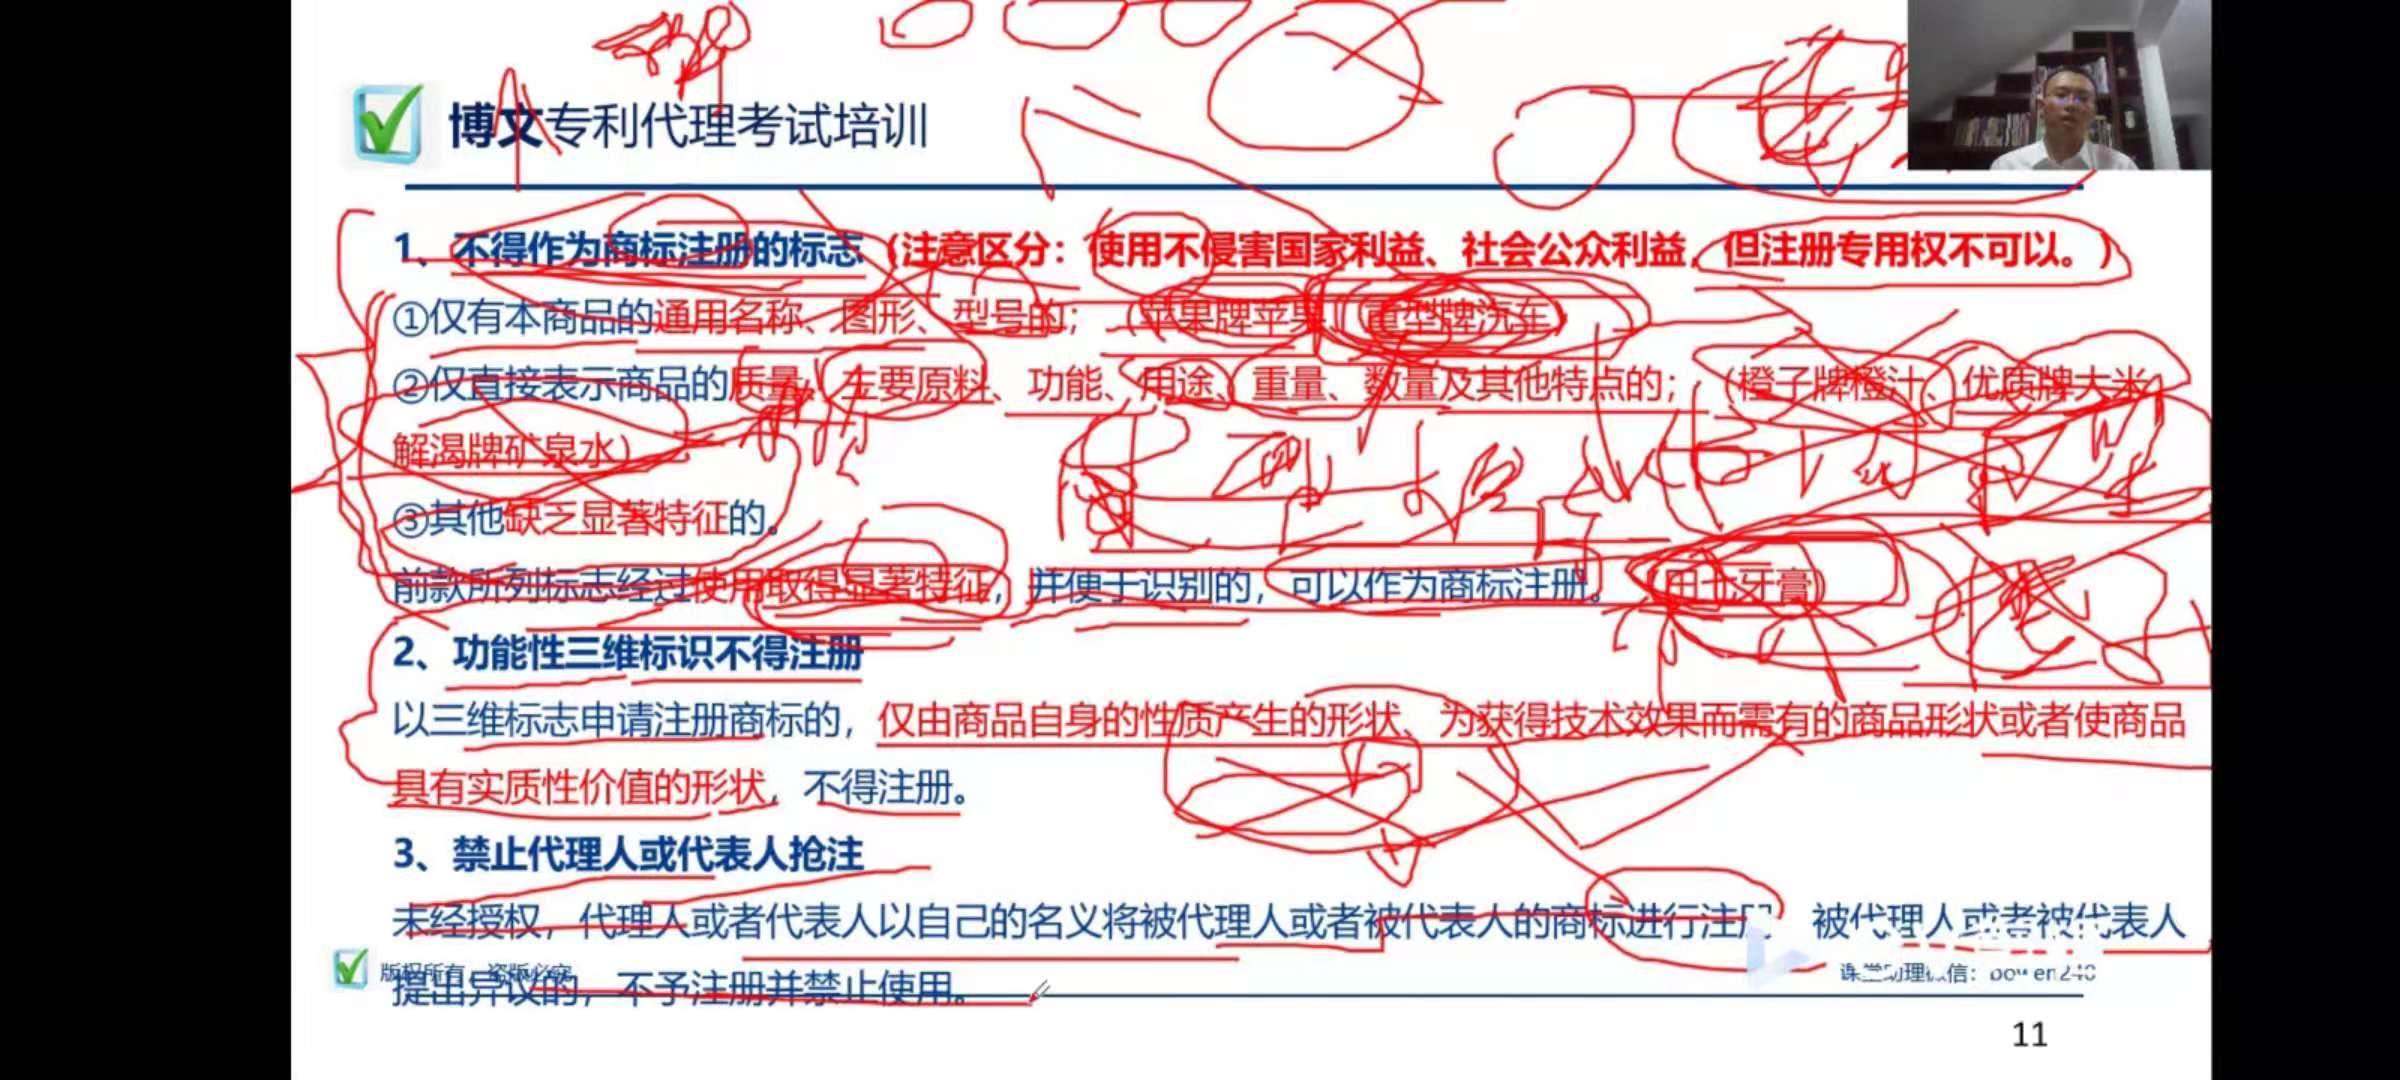 博文专利代理考试培训
1、不得作为商标注册的标志（注意区分：使用不侵害国家利益、社会公众利益，但注册专用权不可以。）
①仅有本商品的通用名称、图形、型号的；（苹果牌苹果、重型牌汽车）
②仅直接表示商品的质量、主要原料、功能、用途、重量、数量及其他特点的；（橙子牌橙汁、优质牌大米、
解渴牌矿泉水）
③其他缺乏显著特征的。
前款所列标志经过使用取得显著特征，并便于识别的，可以作为商标注册。（田七牙膏）
2、功能性三维标识不得注册
以三维标志申请注册商标的，仅由商品自身的性质产生的形状、为获得技术效果而需有的商品形状或者使商品
具有实质性价值的形状，不得注册。
3、禁止代理人或代表人抢注
未经授权，代理人或者代表人以自己的名义将被代理人或者被代表人的商标进行注册，被代理人或者被代表人
提出异议的，不予注册并禁止使用。
版权所有，盗版必究
课堂助理微信：bowen246
11